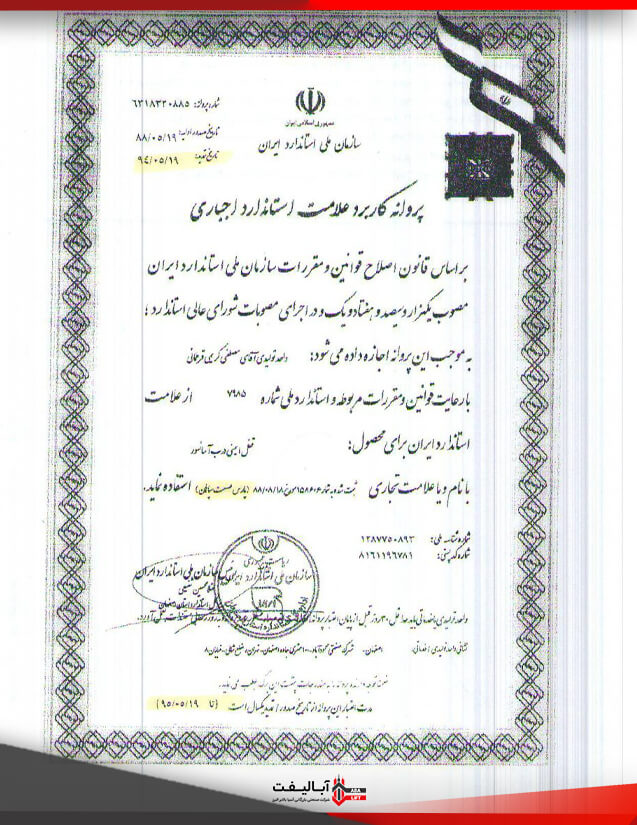 جمهوری اسلامی ایران
سازمان ملی استاندارد ایران
شماره پروانه: ۶۳۱۸۳۲۰۸۸۵
تاریخ صدور اولیه: ۸۸/۰۵/۱۹
تاریخ تمدید: ۹۴/۰۵/۱۹
پروانه کاربرد علامت استاندارد اجباری
بر اساس قانون اصلاح قوانین و مقررات سازمان ملی استاندارد ایران
مصوب یکهزار و سیصد و هفتاد و یک و در اجرای مصوبات شورای عالی استاندارد ؛
به موجب این پروانه اجازه داده می شود: واحد تولیدی آقای مصطفی کریمی
با رعایت قوانین و مقررات مربوطه و استاندارد ملی شماره ۷۹۸۵ از علامت
استاندارد ایران برای محصول: قفل ایمنی درب آسانسور
با نام و یا علامت تجاری ثبت شده به شماره ۱۵۸۶۰۶ مورخ ۸۸/۰۸/۱۸ (پارس صنعت سپاهان) استفاده نماید.
شماره شناسه ملی: ۱۲۸۷۷۵۰۸۹۳
شماره کدپستی: ۸۱۶۱۱۹۶۷۸۱
سازمان ملی استاندارد ایران
واحد تولیدی یا خدماتی باید حداقل ۳۰ روز قبل از پایان اعتبار پروانه
نشانی واحد تولیدی / خدماتی: اصفهان-
مدت اعتبار این پروانه از تاریخ صدور / تمدید یکسال است (تا ۹۵/۰۵/۱۹)
آبالیفت
ABA LIFT